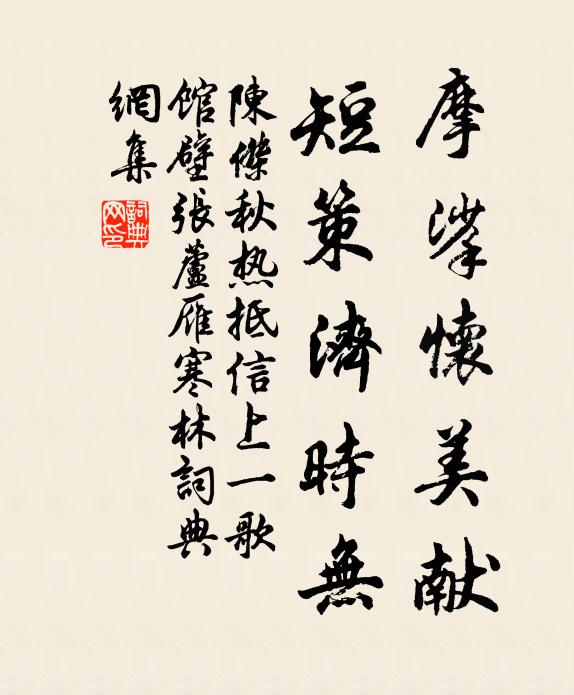 摩挲懷美献
短策濟時無
陳傑秋热抵信上一歌
館壁張蘆雁寒林詞典
網集
詞典網印